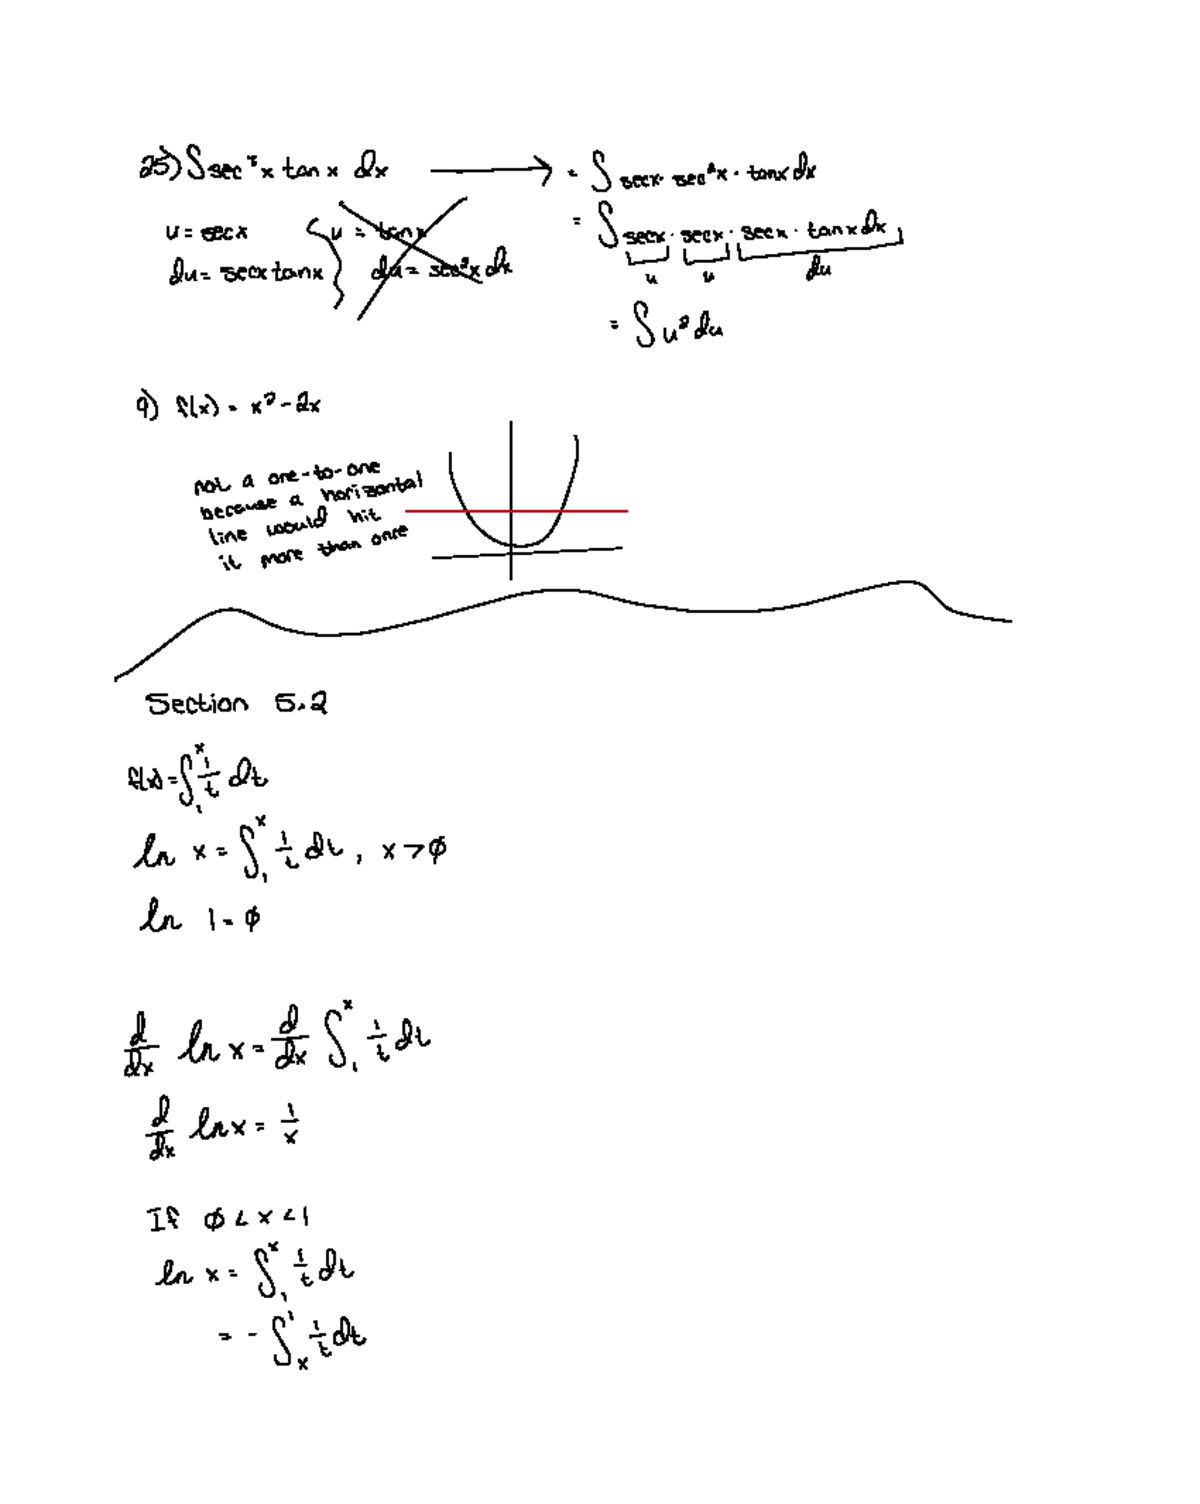 25) ∫ sec³x tan x dx → = ∫ secx · sec²x · tanx dx
= ∫ secx · secx · secx · tanx dx
u u du
= ∫ u² du
u = secx
du = secx tanx
u = tanx
du = sec²x dx
9) f(x) = x² - 2x
not a one-to-one
because a horizontal
line would hit
it more than once
Section 5.2
f(x) = ∫₁ˣ 1/t dt
ln x = ∫₁ˣ 1/t dt, x > 0
ln 1 = 0
d/dx ln x = d/dx ∫₁ˣ 1/t dt
d/dx ln x = 1/x
If 0 < x < 1
ln x = ∫₁ˣ 1/t dt
= - ∫ₓ¹ 1/t dt